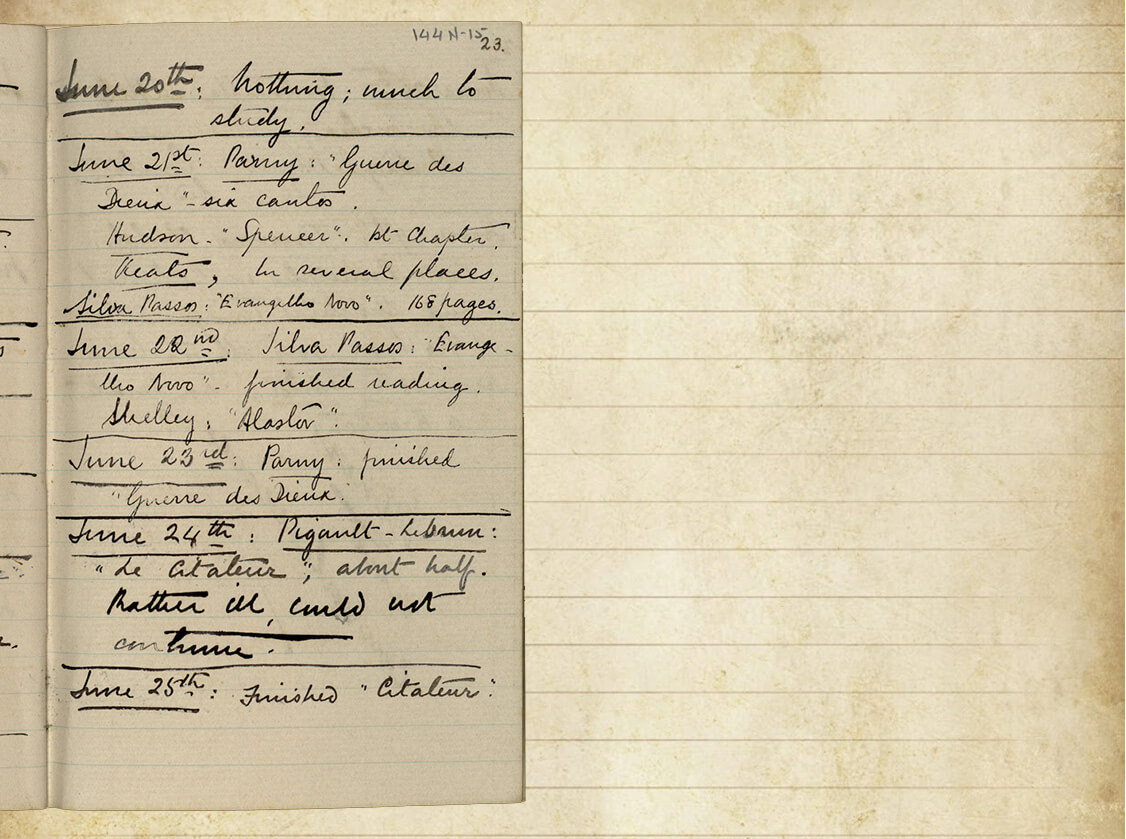 144N-15
23.
June 20th: Nothing; much to
study.
June 21st: Parny: "Guerre des
Dieux" - six cantos.
Hudson - "Spencer". 1st Chapter.
Keats, in several places.
Silva Passos: "Evangelho Novo". 168 pages.
June 22nd: Silva Passos: "Evange-
lho Novo" - finished reading.
Shelley: "Alastor".
June 23rd: Parny: finished
"Guerre des Dieux."
June 24th: Pigault-Lebrun:
"Le Citateur"; about half.
Rather ill, could not
continue.
June 25th: Finished "Citateur".